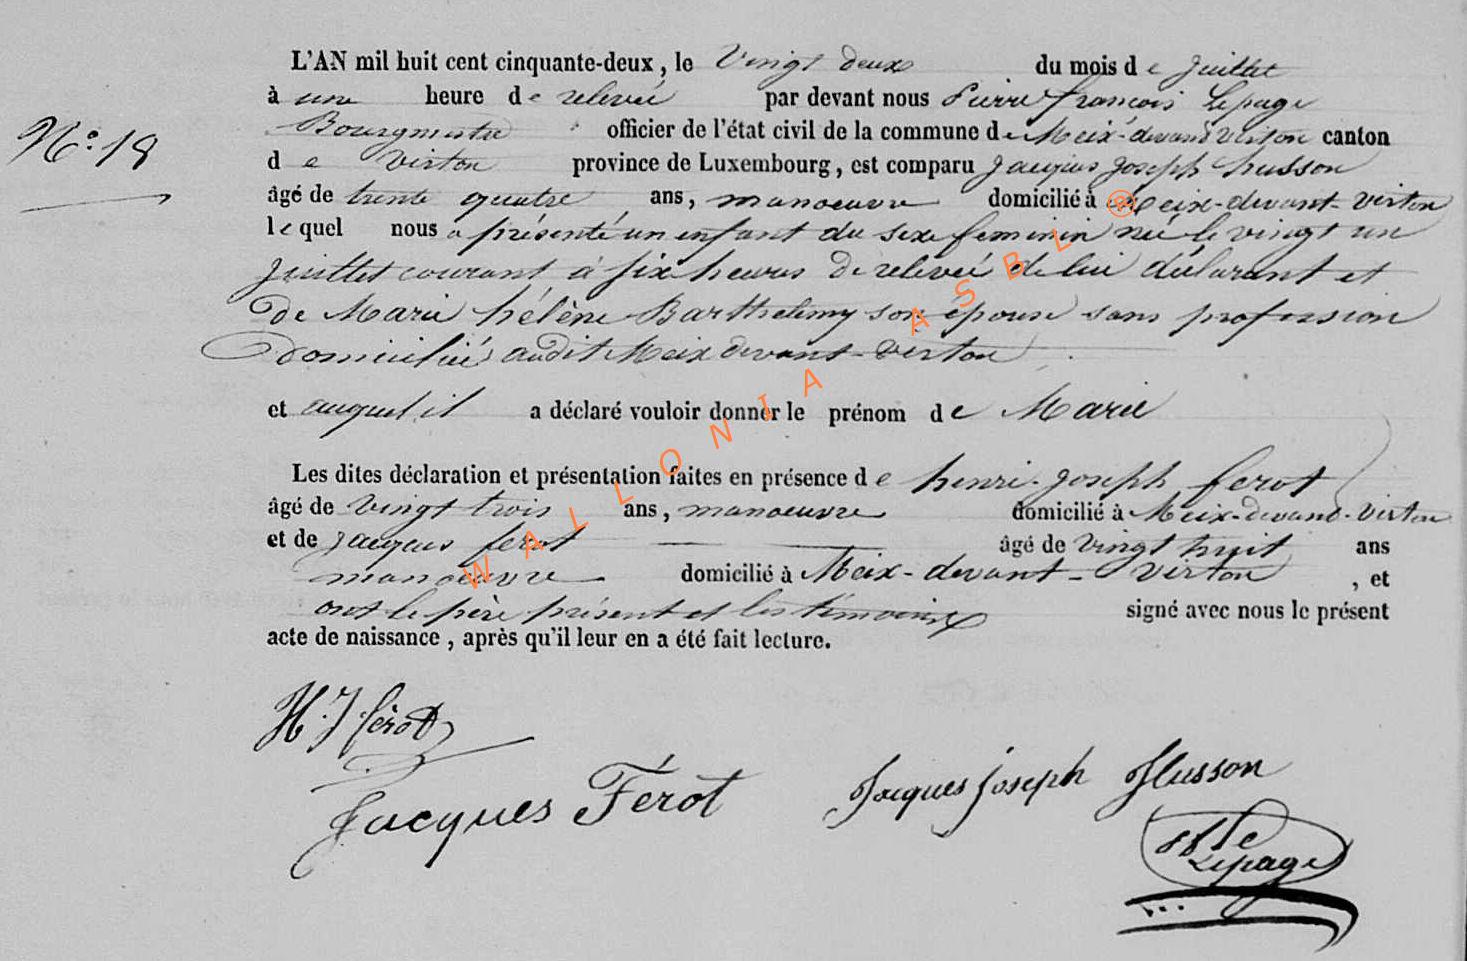 L'AN mil huit cent cinquante-deux, le Vingt deux du mois de Juillet
à une heure de relevée par devant nous Pierre françois Lepage
Nº. 18
Bourgmestre officier de l'état civil de la commune de Meix-devant Virton canton
de Virton province de Luxembourg, est comparu Jacques Joseph husson
âgé de trente quatre ans, manoeuvre domicilié à Meix-devant-virton
lequel nous a présenté un enfant du sexe feminin née le vingt un
Juillet courant à six heures de relevée de lui déclarant et
de Marie hélène Barthelemy son épouse sans profession
domiciliée audit Meix devant-Virton
et auquel il a déclaré vouloir donner le prénom de Marie
Les dites déclaration et présentation faites en présence de henri-Joseph ferot
âgé de Vingt trois ans, manoeuvre domicilié à Meix-devant-Virton
et de Jacques ferot âgé de Vingt huit ans
manoeuvre domicilié à Meix-devant-Virton, et
ont le père présent et les témoins signé avec nous le présent
acte de naissance, après qu'il leur en a été fait lecture.
H.J ferot
Jacques Férot Jacques Joseph Husson
Lepage
WALLONIA ASBL ®